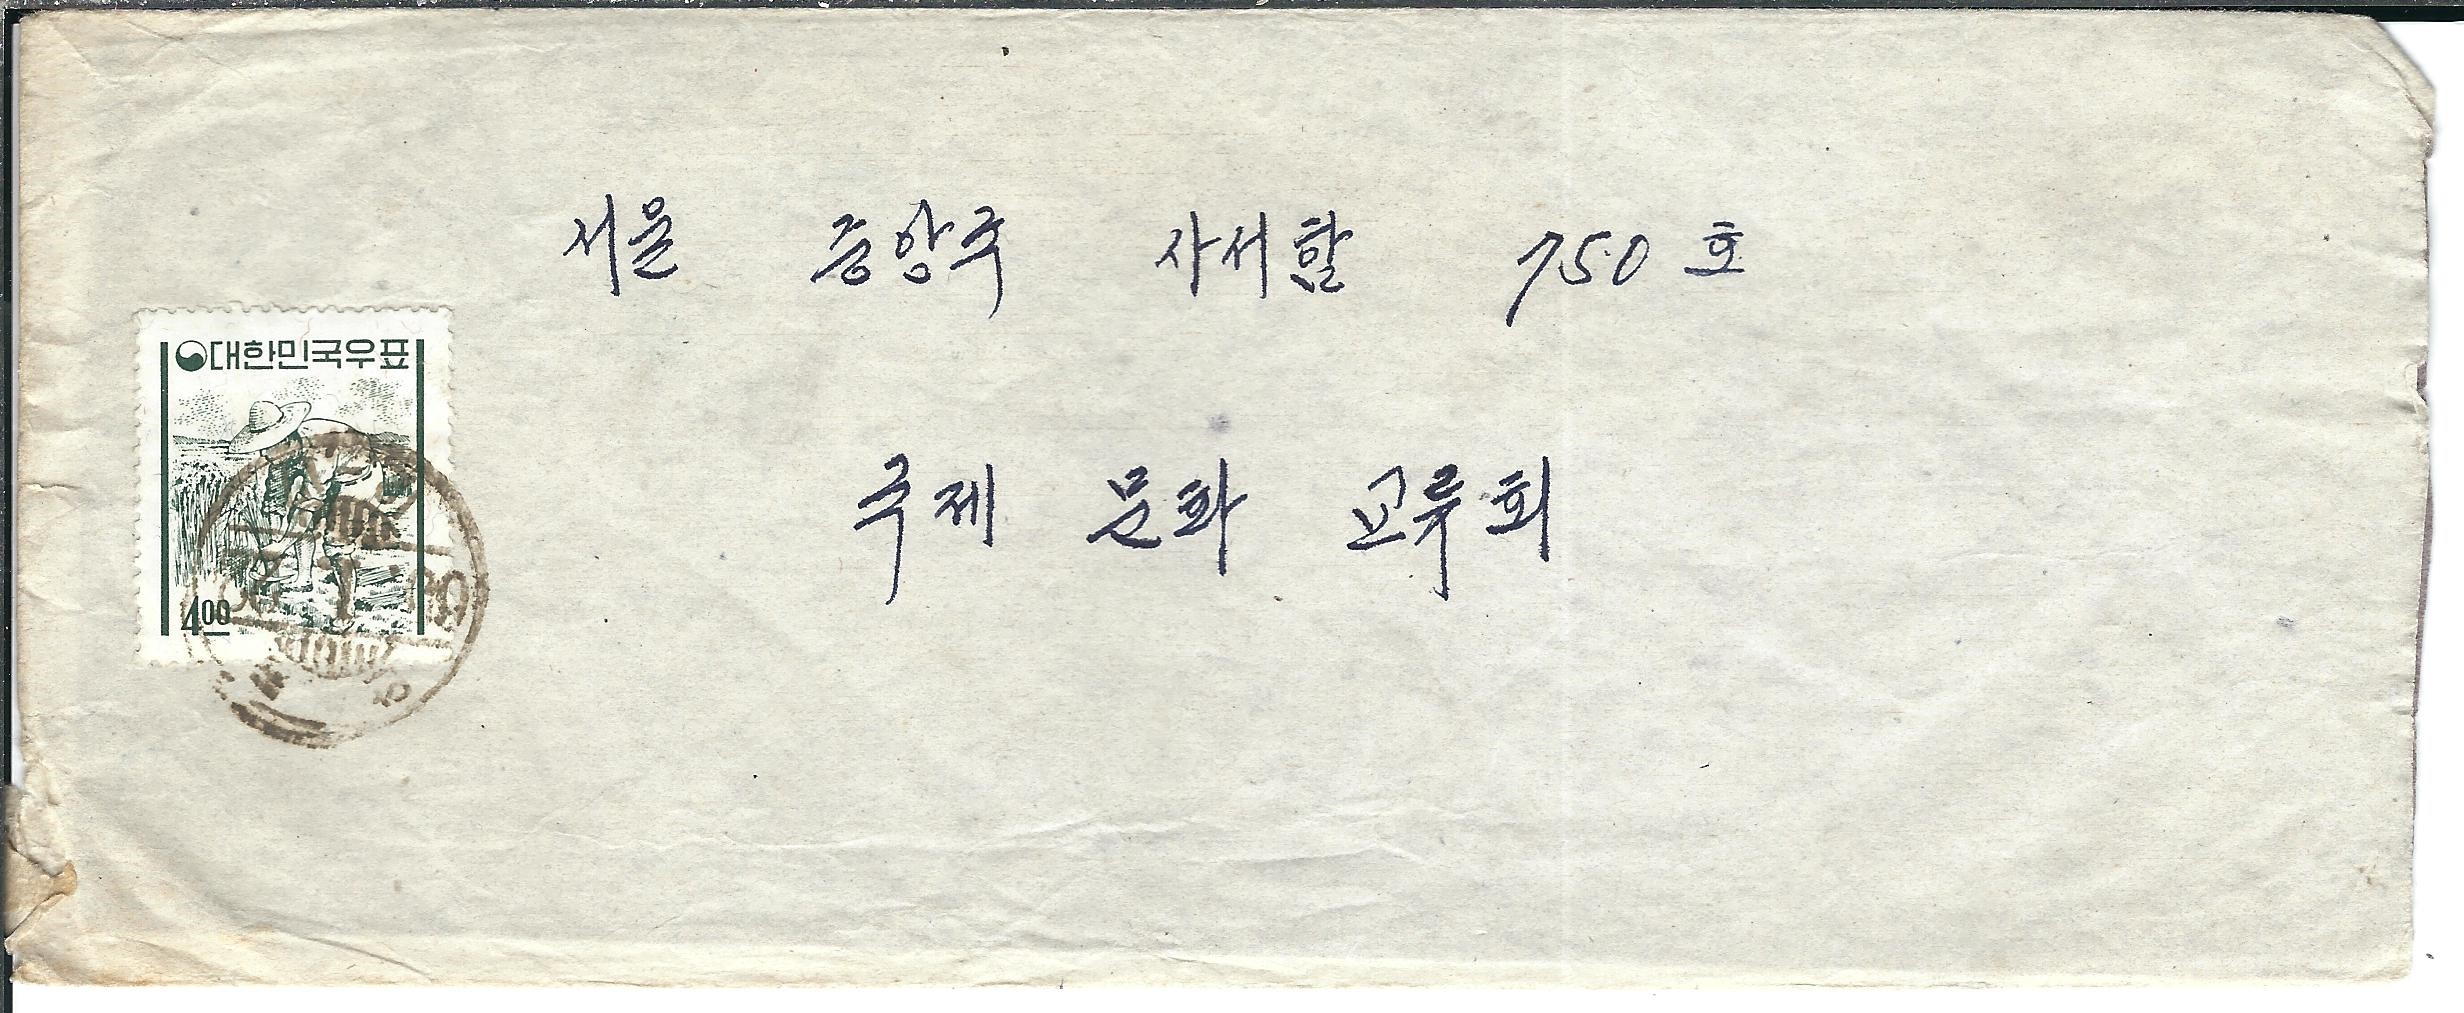 서울 중앙국 사서함 750 호
국제 문화 교류회
대한민국우표
400